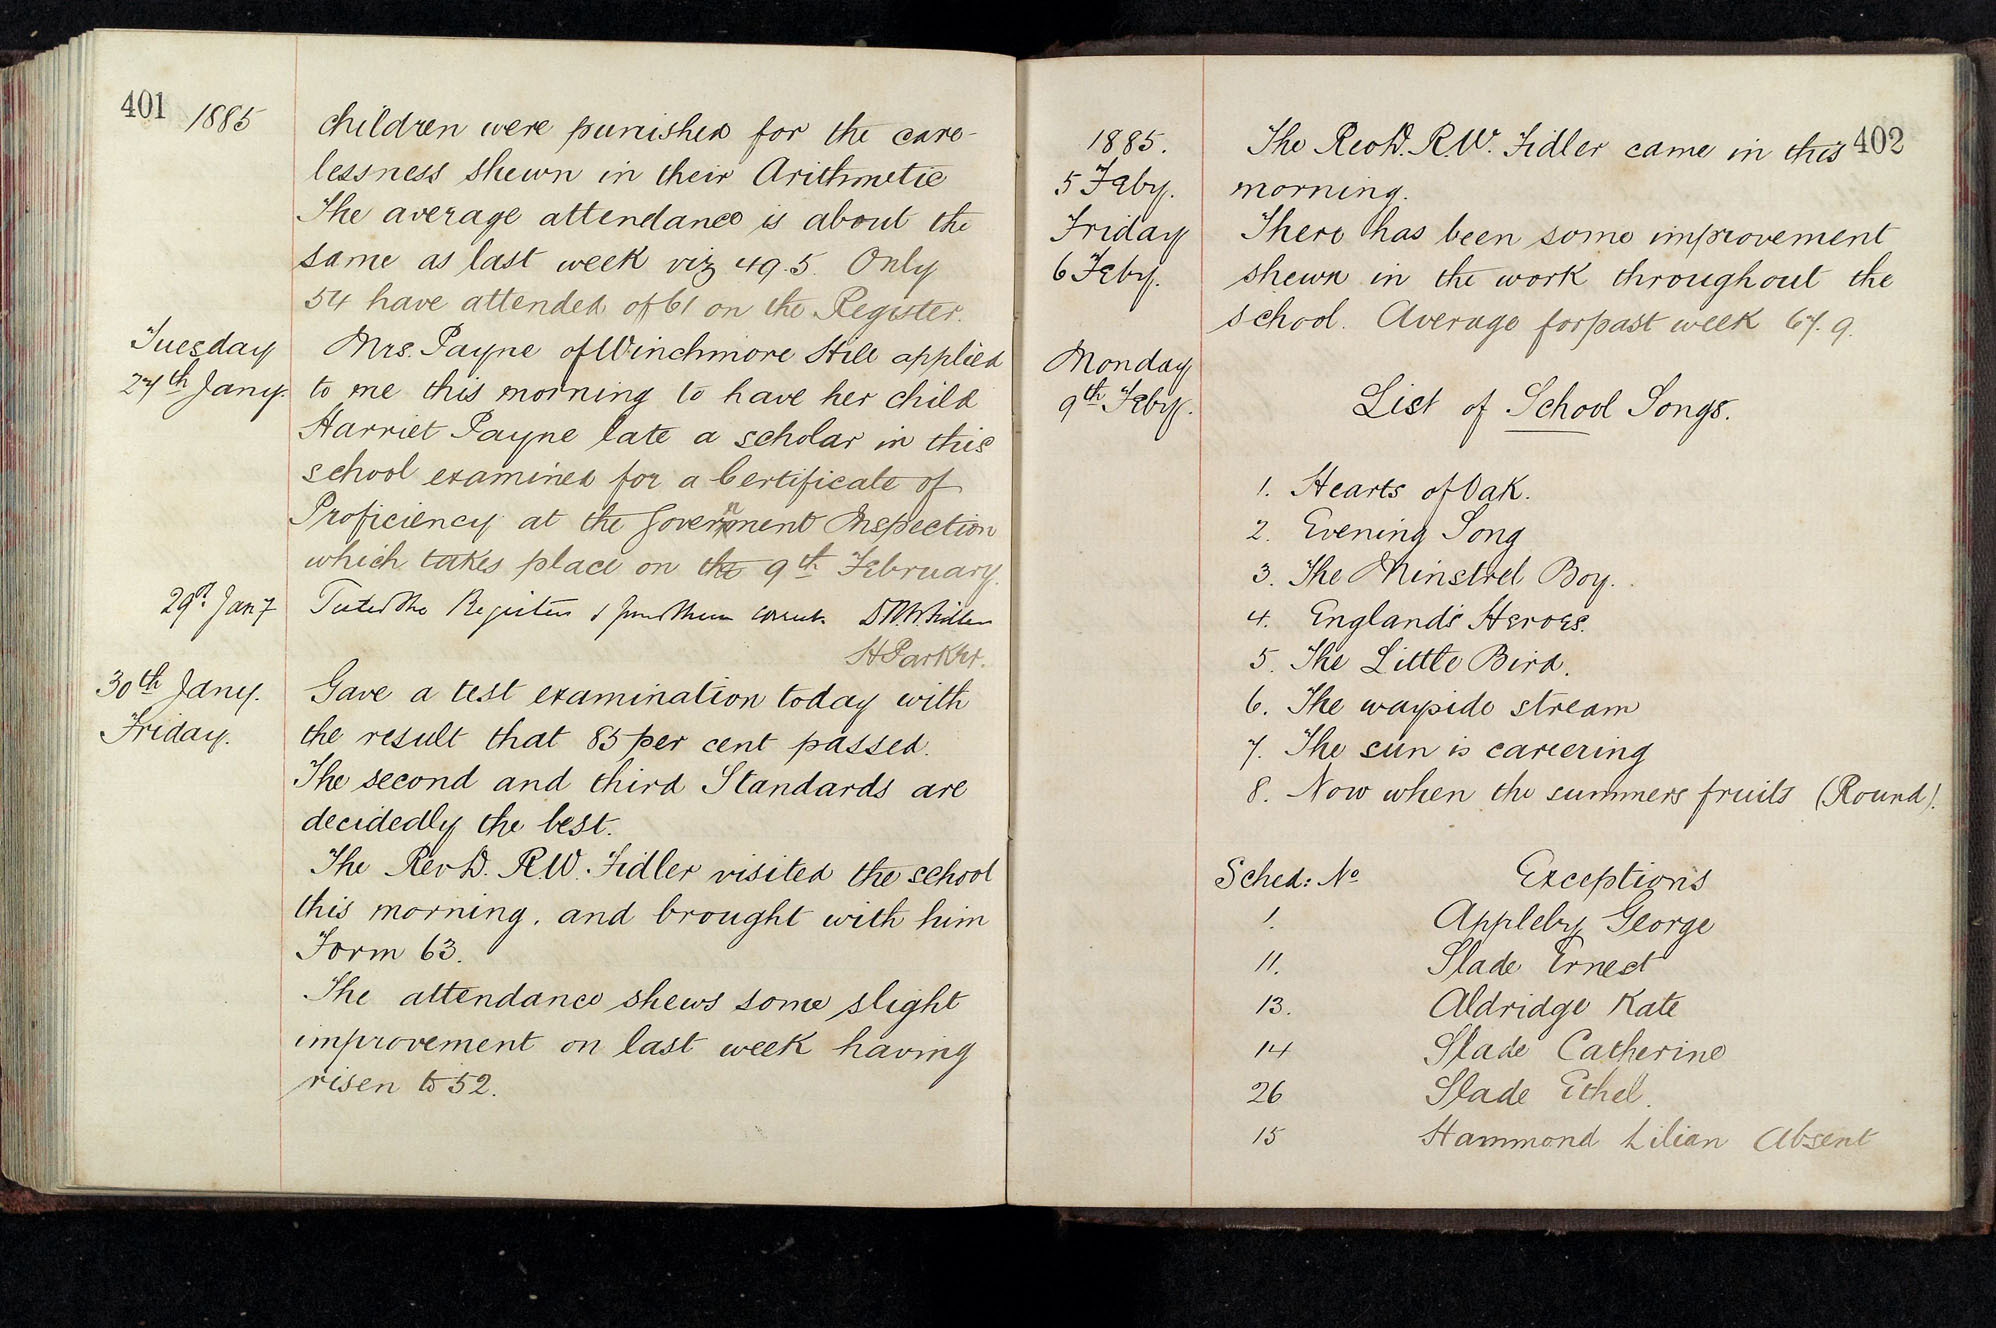 401 1885
children were punished for the care-
lessness shewn in their Arithmetic
The average attendance is about the
same as last week viz 49.5. Only
54 have attended of 61 on the Register.
Tuesday
27th Jany.
Mrs. Payne of Winchmore Hill applied
to me this morning to have her child
Harriet Payne late a scholar in this
school examined for a Certificate of
Proficiency at the Government Inspection
which takes place on the 9th February.
29th Jany
Tested the Registers & found them correct. RW Fidler
H Parker.
30th Jany.
Friday.
Gave a test examination today with
the result that 85 per cent passed.
The second and third Standards are
decidedly the best.
The RevD. R.W. Fidler visited the school
this morning, and brought with him
Form 63.
The attendance shews some slight
improvement on last week having
risen to 52.
402
1885.
5 Feby.
The RevD. R.W. Fidler came in this
morning.
Friday
6 Feby.
There has been some improvement
shewn in the work throughout the
school. Average for past week 67.9.
Monday
9th Feby.
List of School Songs.
1. Hearts of Oak.
2. Evening Song
3. The Minstrel Boy.
4. England's Heroes.
5. The Little Bird.
6. The wayside stream
7. The sun is careering
8. Now when the summers fruits (Round).
Sched: No Exceptions
1. Appleby George
11. Slade Ernest
13. Aldridge Kate
14 Slade Catherine
26 Slade Ethel.
15 Hammond Lilian Absent